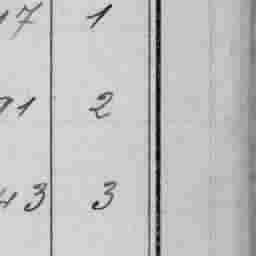 17 1
91 2
43 3